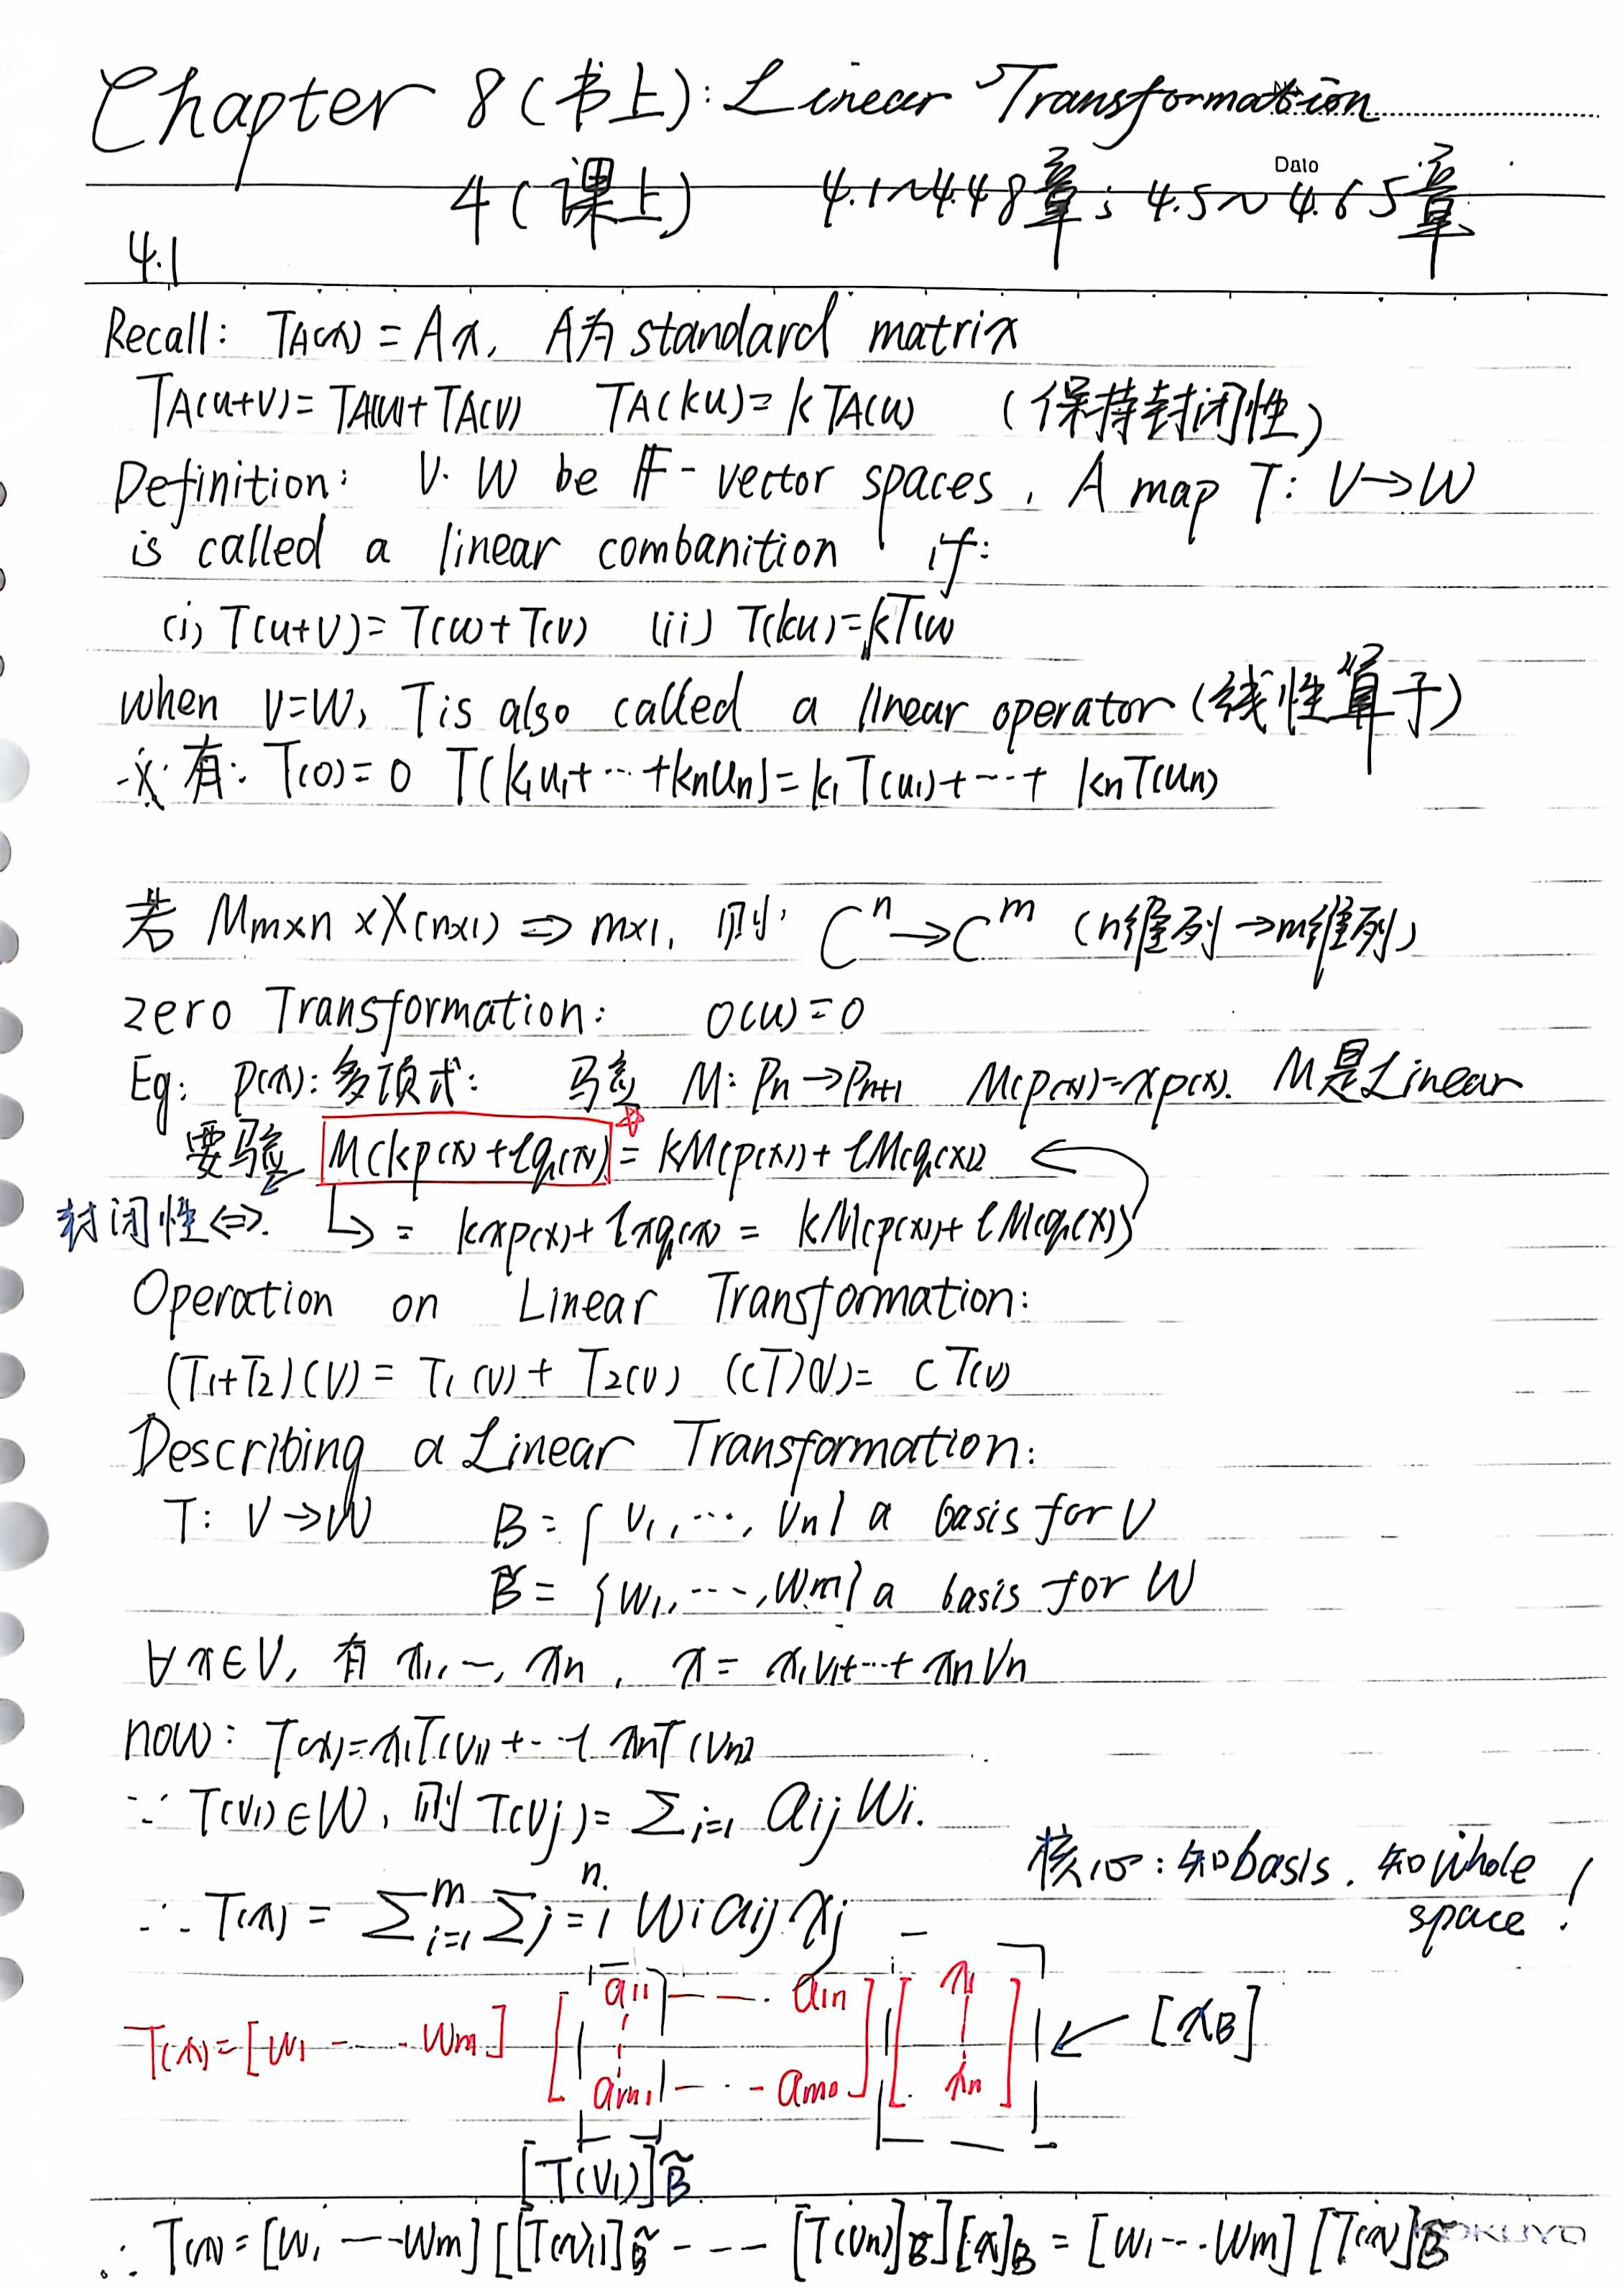 Chapter 8(书上): Linear Transformation
Date
4(课上) 4.1~4.4 8章; 4.5~4.6 5章
4.1
Recall: TA(x) = Ax, A为 standard matrix
TA(u+v)= TA(u)+TA(v) TA(ku)= kTA(u) (保持封闭性)
Definition: V. W be 𝔽-vector spaces, A map T: V→W
is called a linear combanition if:
(i) T(u+v)= T(u)+T(v) (ii) T(ku)=kT(u)
when V=W, T is also called a linear operator (线性算子)
※有: T(0)=0 T(k1u1+⋯+knun)=k1T(u1)+⋯+ knT(un)
若 Mm×n × X(n×1) ⇒ m×1, 则: Cⁿ→Cᵐ (n维列→m维列)
zero Transformation: O(u)=0
Eg: p(x):多项式: 验 M: Pn→Pn+1 M(p(x))=xp(x). M是Linear
要验 M(kp(x)+lq(x)) = kM(p(x))+lM(q(x))
封闭性⇔ ↳ = kxp(x)+lxq(x) = kM(p(x))+lM(q(x))
Operation on Linear Transformation:
(T1+T2)(v) = T1(v) + T2(v) (cT)(v)= cT(v)
Describing a Linear Transformation:
T: V→W B = {v1, ⋯, vn} a basis for V
B̃ = {w1, ⋯, wm} a basis for W
∀x∈V, 有 x1, ⋯, xn, x = x1v1+⋯+xnvn
now: T(x)=x1T(v1)+⋯+xnT(vn)
∵ T(v1)∈W, 则 T(vj)= Σi=1 aij wi.
核心: 知basis. 知whole
∴ T(x) = Σᵐi=1 Σⁿj=1 wi aij xj
space!
T(x)=[w1 ⋯ wm] [a11 ⋯ a1n ⋮ am1 ⋯ amn] [x1 ⋮ xn] ← [xB]
[T(v1)]B̃
∴ T(x) = [w1 ⋯ wm] [[T(v1)]B̃ ⋯ [T(vn)]B̃][x]B = [w1 ⋯ wm] [T(x)]B̃
KOKUYO